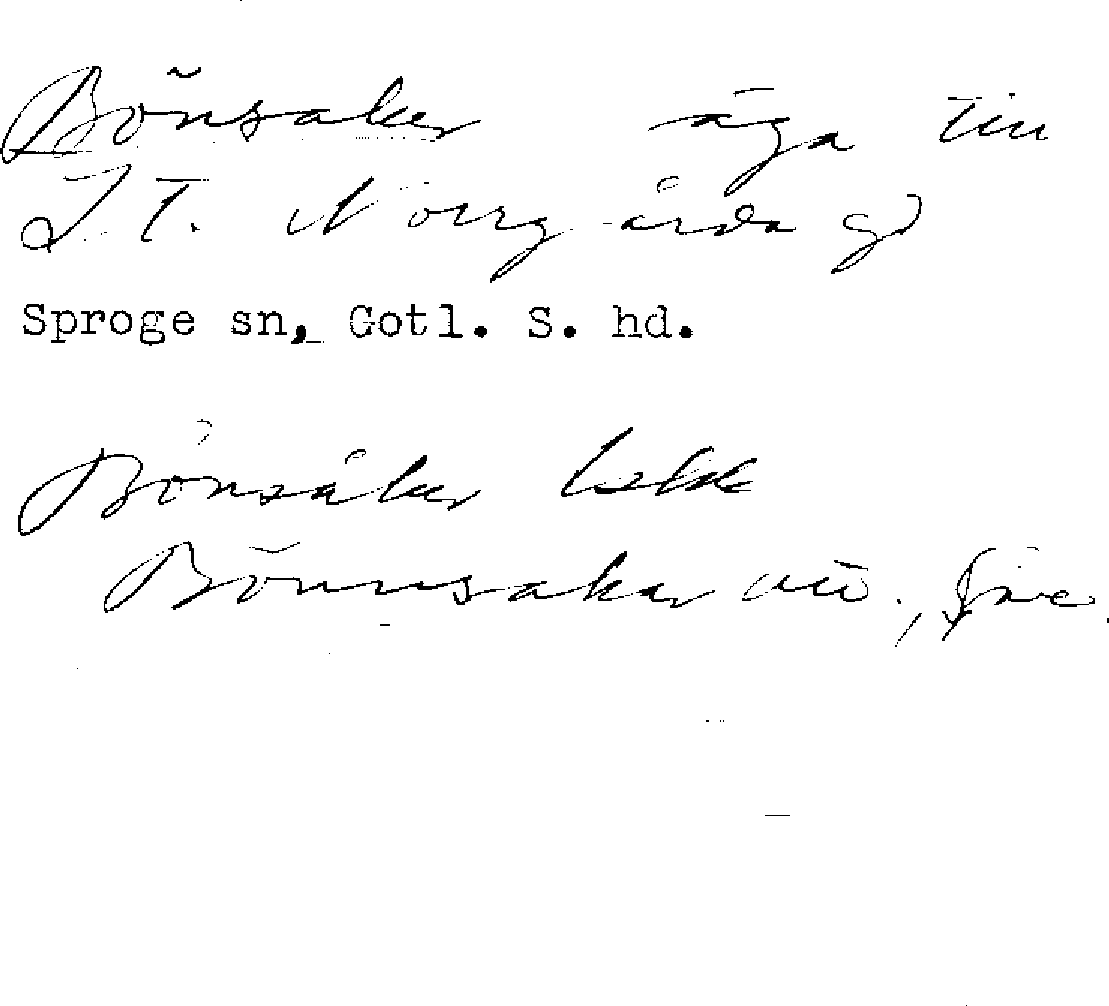 Bönsaker äga till
I. T. Norrgårda gd
Sproge sn, Gotl. S. hd.
Bönsåker
Bönnsakar